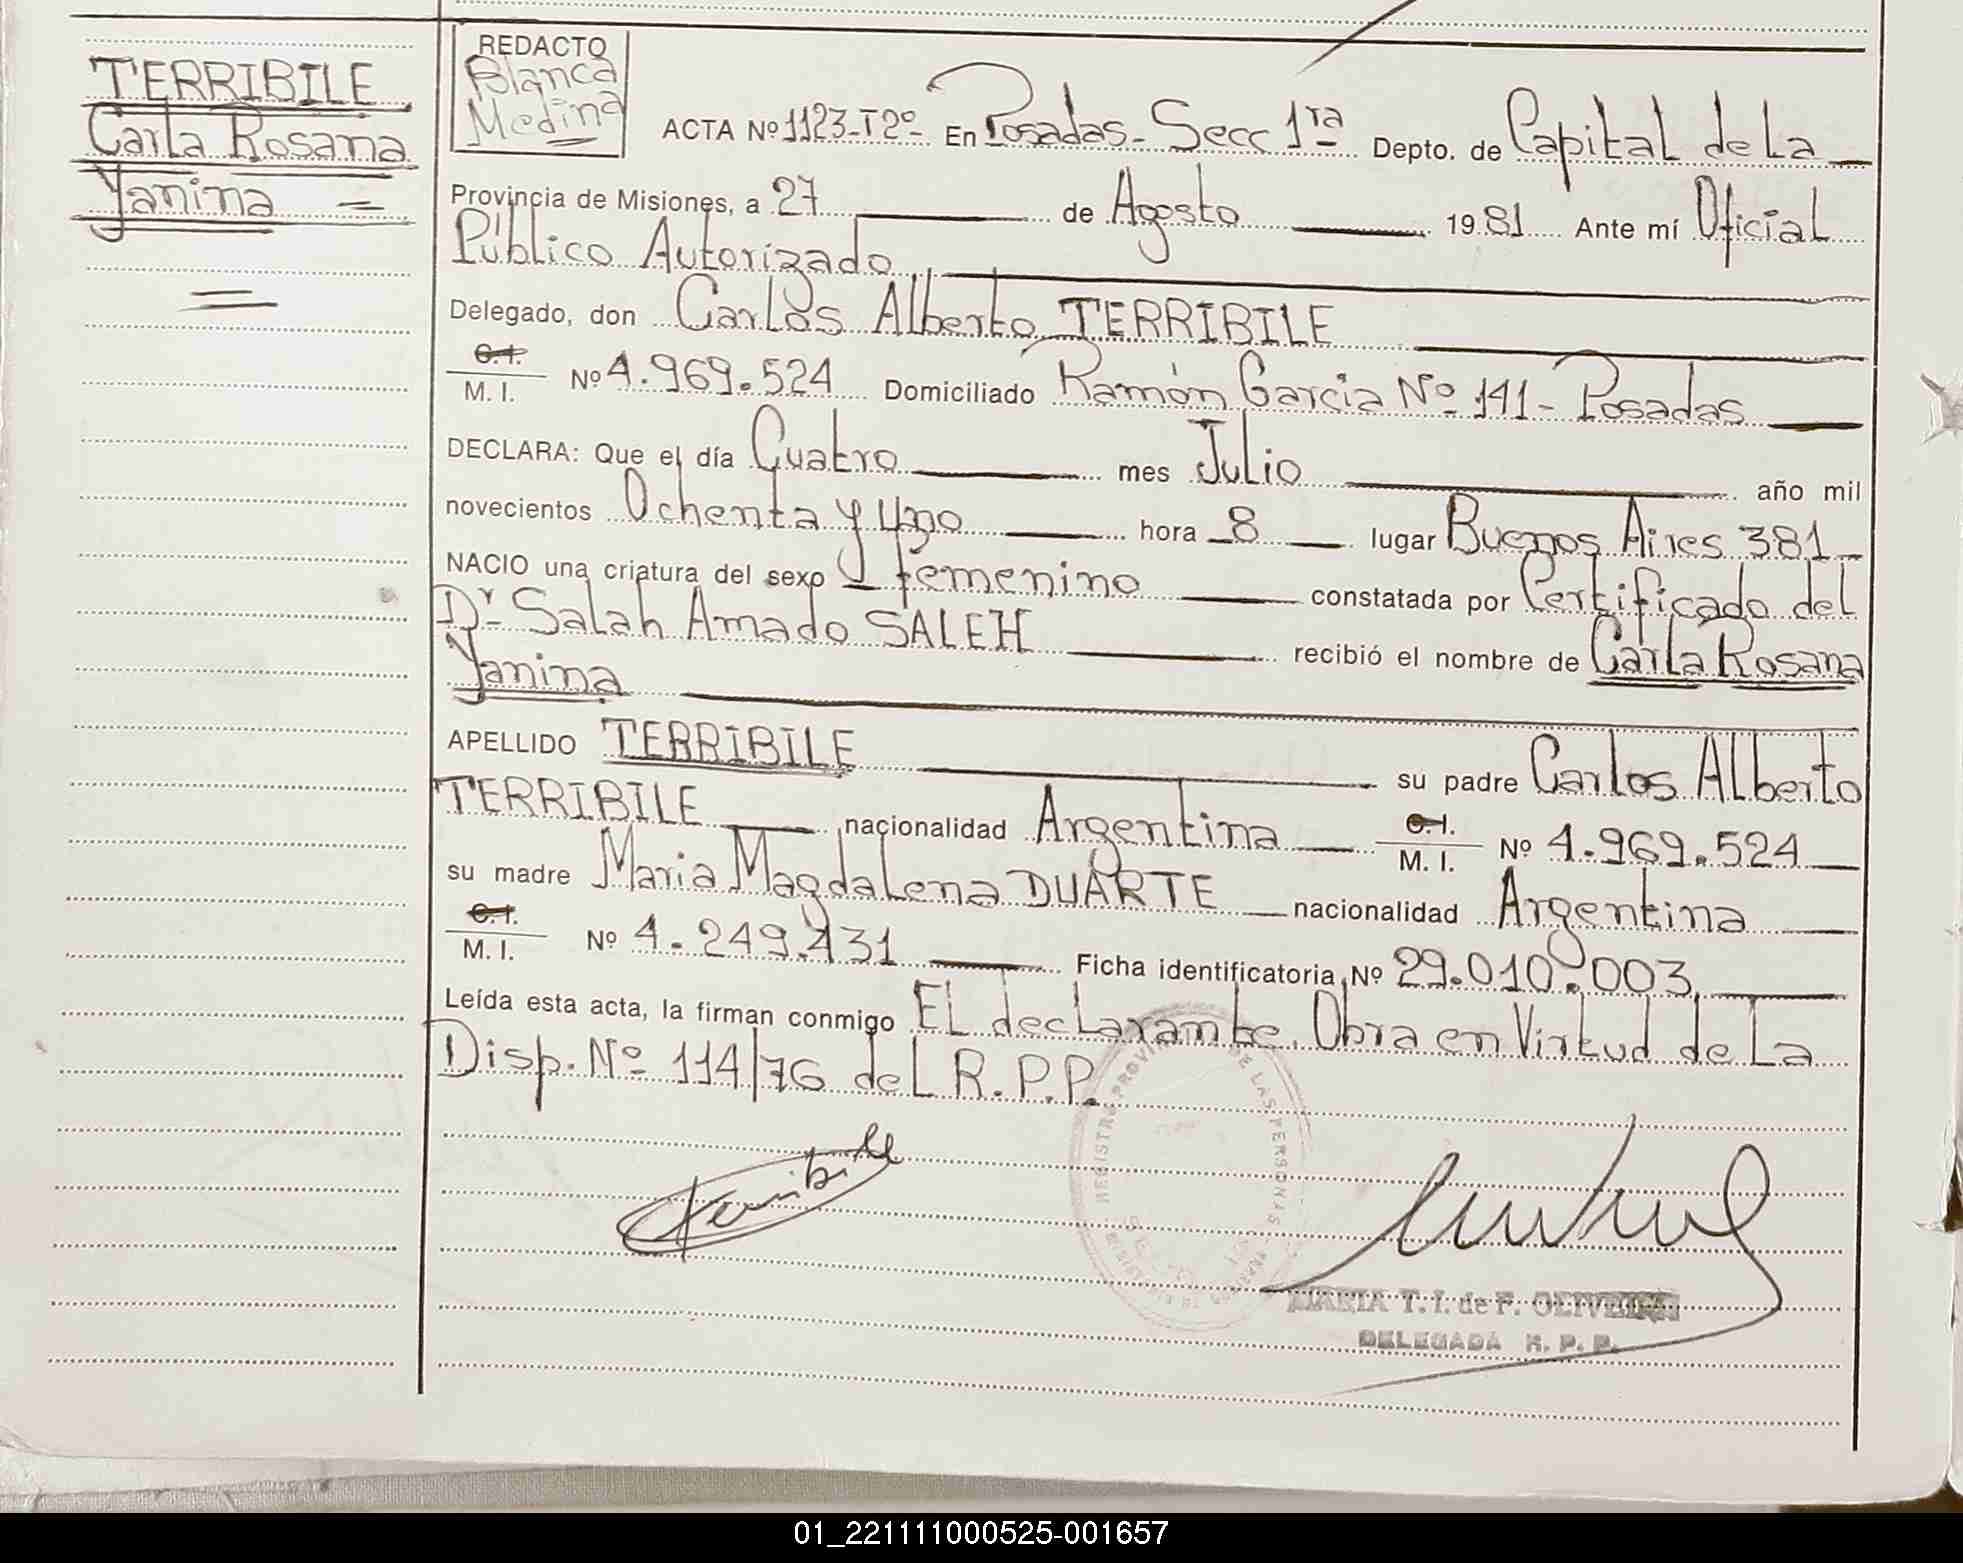 TERRIBILE
Carla Rosana
Yanina =
REDACTO
Blanca
Medina
ACTA Nº 1123-T2º- En Posadas- Secc 1ra Depto. de Capital de La
Provincia de Misiones, a 27 de Agosto 1981 Ante mí Oficial
Público Autorizado
Delegado, don Carlos Alberto TERRIBILE
C.I.
M. I. Nº 4.969.524 Domiciliado Ramón Garcia Nº 141- Posadas
DECLARA: Que el día Cuatro mes Julio año mil
novecientos Ochenta y Uno hora 8 lugar Buenos Aires 381-
NACIO una criatura del sexo femenino constatada por Certificado del
Dr Salah Amado SALEH recibió el nombre de Carla Rosana
Yanina
APELLIDO TERRIBILE su padre Carlos Alberto
TERRIBILE nacionalidad Argentina C.I. M. I. Nº 4.969.524
su madre Maria Magdalena DUARTE nacionalidad Argentina
C.I.
M. I. Nº 4.249.431 Ficha identificatoria Nº 29.010.003
Leída esta acta, la firman conmigo EL declarante. Obra en Virtud de La
Disp. Nº 114/76 del R.P.P.
REGISTRO PROVINCIAL DE LAS PERSONAS
Terribile
MARIA T. I. de F. OLIVEIRA
DELEGADA R. P. P.
01_221111000525-001657